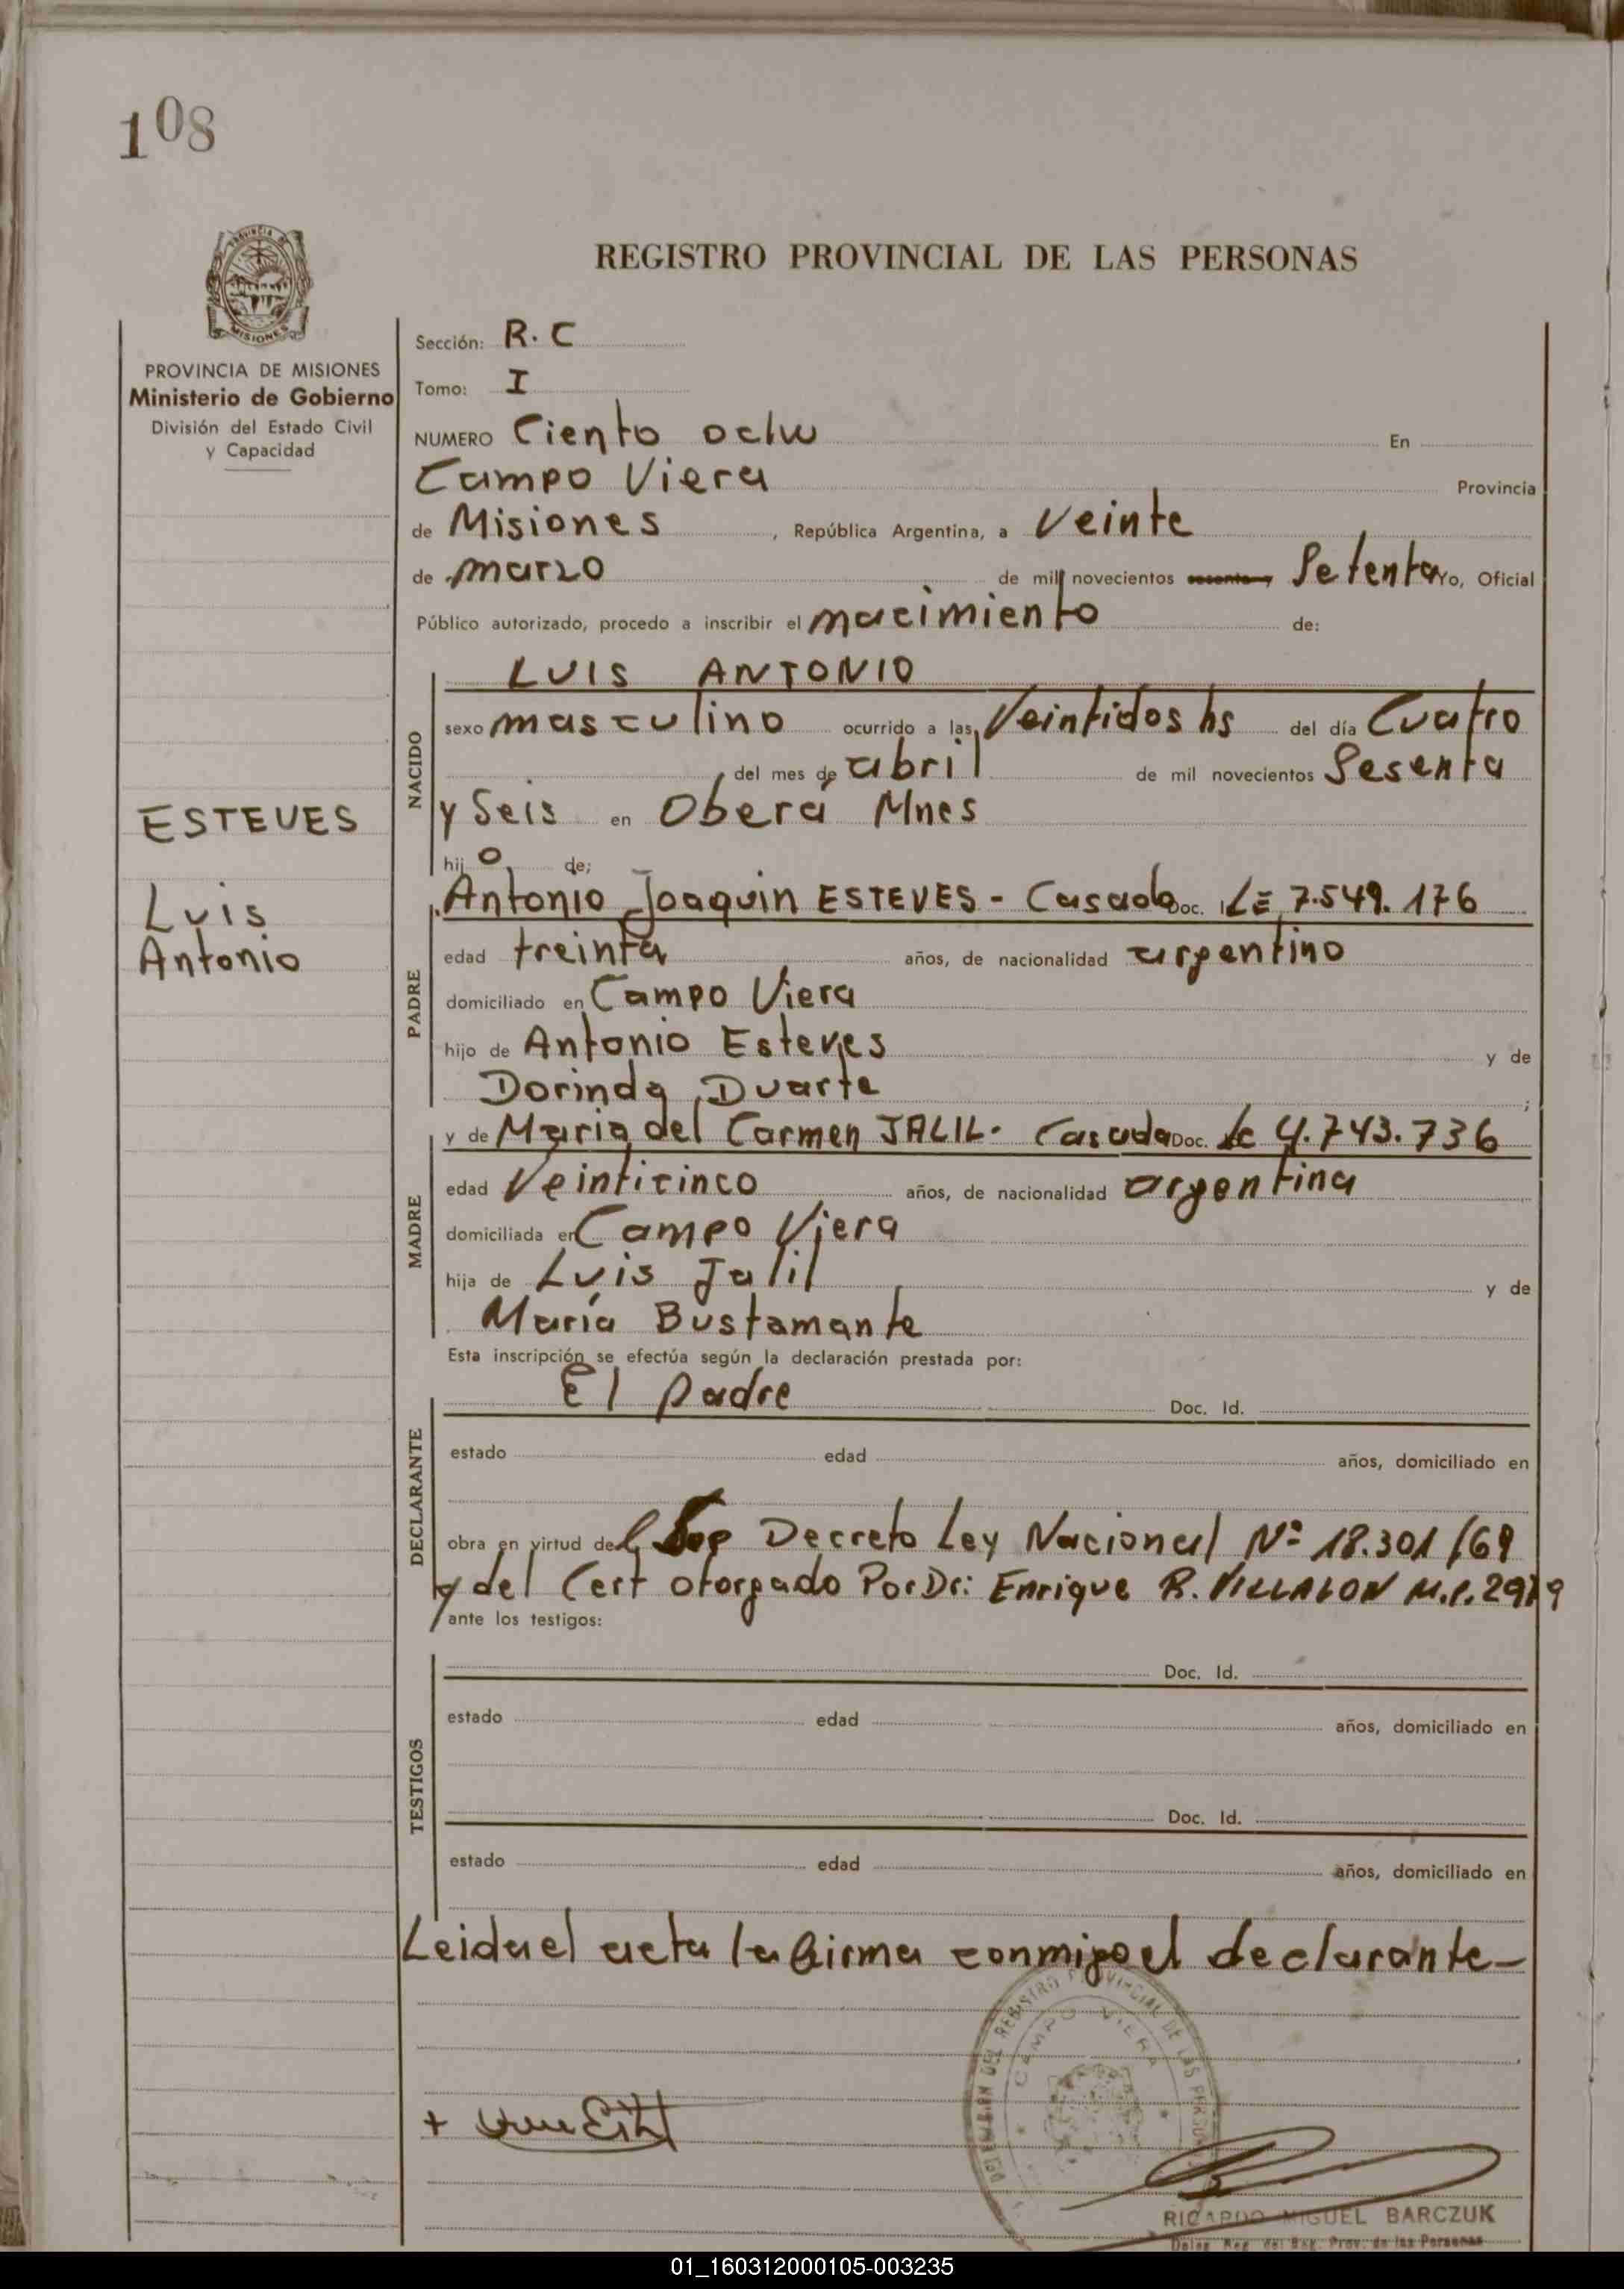 108
PROVINCIA DE MISIONES
Ministerio de Gobierno
División del Estado Civil
y Capacidad
ESTEVES
Luis
Antonio
REGISTRO PROVINCIAL DE LAS PERSONAS
Sección: R.C
Tomo: I
NUMERO Ciento ocho En
Campo Viera Provincia
de Misiones, República Argentina, a Veinte
de marzo de mil novecientos sesenta y Setenta Yo, Oficial
Público autorizado, procedo a inscribir el nacimiento de:
NACIDO
LUIS ANTONIO
sexo masculino ocurrido a las Veintidos hs del día Cuatro
del mes de abril de mil novecientos Sesenta
y Seis en Oberá Mnes
hijo de;
PADRE
Antonio Joaquin ESTEVES - Casado Doc. LE 7.549.176
edad treinta años, de nacionalidad argentino
domiciliado en Campo Viera
hijo de Antonio Esteves y de
Dorinda Duarte ;
MADRE
y de Maria del Carmen JALIL. Casada Doc. Lc 4.743.736
edad Veinticinco años, de nacionalidad argentina
domiciliada en Campo Viera
hija de Luis Jalil y de
María Bustamante
Esta inscripción se efectúa según la declaración prestada por:
DECLARANTE
El padre Doc. Id.
estado edad años, domiciliado en
obra en virtud del Decreto Ley Nacional Nº 18.301/69
y del Cert otorgado Por Dr: Enrique R. VILLALON M.P.
ante los testigos:
TESTIGOS
Doc. Id.
estado edad años, domiciliado en
Doc. Id.
estado edad años, domiciliado en
Leida el acta la firma conmigo el declarante-
DEL REGISTRO PROVINCIAL DE LAS PERSONAS
CAMPO VIERA
RICARDO MIGUEL BARCZUK
Deleg. Reg. del Reg. Prov. de las Personas
01_160312000105-003235